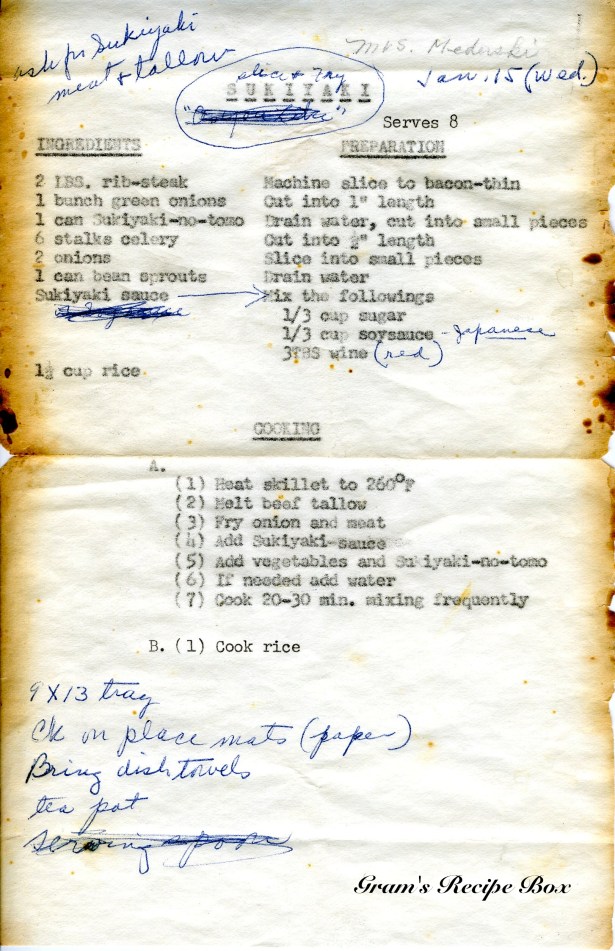 ask for Sukiyaki
meat & tallow
Mrs. Mederski
Jan. 15 (Wed.)
slice & Fry
SUKIYAKI
Serves 8
INGREDIENTS PREPARATION
2 LBS. rib-steak Machine slice to bacon-thin
1 bunch green onions Cut into 1" length
1 can Sukiyaki-no-tomo Drain water, cut into small pieces
6 stalks celery Cut into ½" length
2 onions Slice into small pieces
1 can bean sprouts Drain water
Sukiyaki sauce Mix the followings
1/3 cup sugar
1/3 cup soysauce - Japanese
3TBS wine (red)
1½ cup rice
COOKING
A.
(1) Heat skillet to 260°F
(2) Melt beef tallow
(3) Fry onion and meat
(4) Add Sukiyaki-sauce
(5) Add vegetables and Sukiyaki-no-tomo
(6) If needed add water
(7) Cook 20-30 min. mixing frequently
B. (1) Cook rice
9 X 13 tray
Ck on place mats (paper)
Bring dish towels
tea pot
serving spoon
Gram's Recipe Box